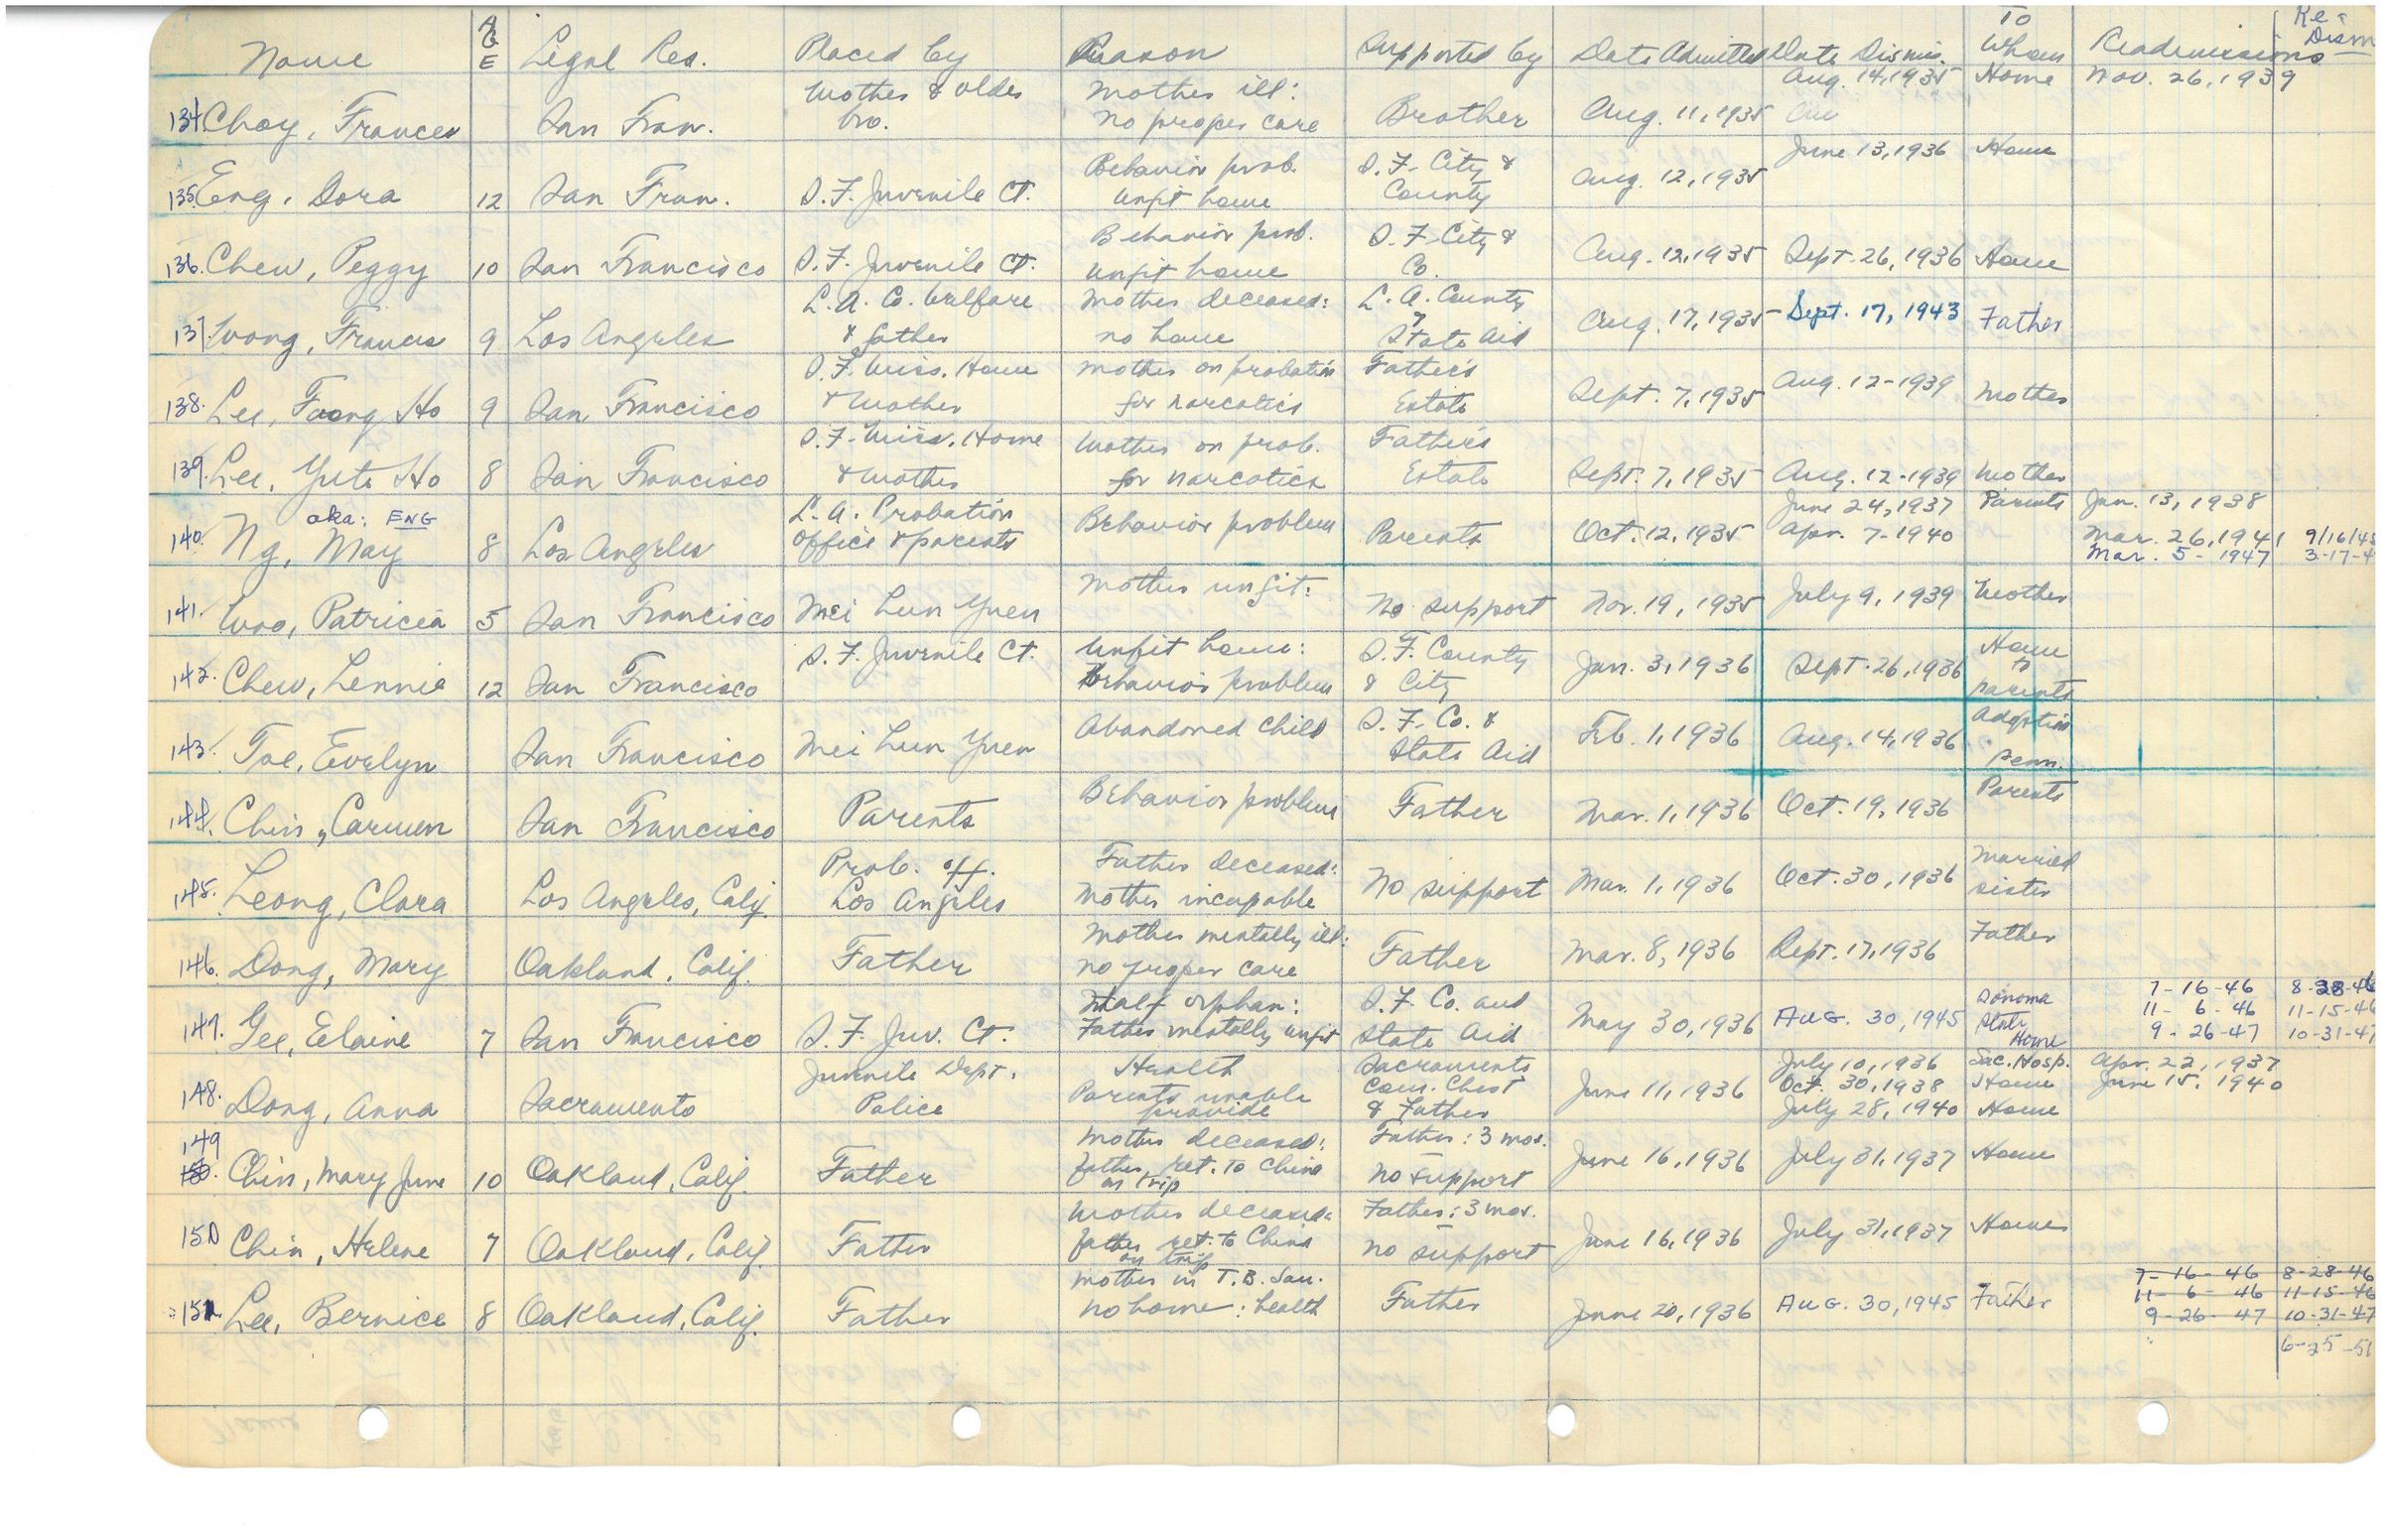 Name AGE Legal Res. Placed by Reason Supported by Date Admitted Date Dismis. To Whom Readmissions Re-Dism
134. Choy, Frances San Fran. Mother & older bro. Mother ill: no proper care Brother Aug. 11, 1935 Aug. 14, 1935 Home Nov. 26, 1939
135. Eng, Dora 12 San Fran. S.F. Juvenile Ct. Behavior prob. Unfit home S.F. City & County Aug. 12, 1935 June 13, 1936 Home
136. Chew, Peggy 10 San Francisco S.F. Juvenile Ct. Behavior prob. Unfit home S.F. City & Co. Aug. 12, 1935 Sept. 26, 1936 Home
137. Wong, Francis 9 Los Angeles L.A. Co. Welfare & father Mother deceased: no home L.A. County & State Aid Aug. 17, 1935 Sept. 17, 1943 Father
138. Lee, Foong Ho 9 San Francisco S.F. Miss. Home & Mother Mother on probation for narcotics Father's Estate Sept. 7, 1935 Aug. 12-1939 Mother
139. Lee, Yute Ho 8 San Francisco S.F. Miss. Home & Mother Mother on prob. for narcotics Father's Estate Sept. 7, 1935 Aug. 12-1939 Mother
140. Ng, May aka: ENG 8 Los Angeles L.A. Probation Office & parents Behavior problem Parents Oct. 12, 1935 June 24, 1937 Parents Jan. 13, 1938
Apr. 7-1940 Mar. 26, 1941 9/16/45
Mar. 5-1947 3-17-4
141. Woo, Patricia 5 San Francisco Mei Lun Yuen Mother unfit: No support Nov. 19, 1935 July 9, 1939 Mother
142. Chew, Lennie 12 San Francisco S.F. Juvenile Ct. Unfit home: Behavior problem S.F. County & City Jan. 3, 1936 Sept. 26, 1936 Home to parents
143. Toe, Evelyn San Francisco Mei Lun Yuen Abandoned child S.F. Co. & State Aid Feb. 1, 1936 Aug. 14, 1936 Adoption Penn.
144. Chin, Carmen San Francisco Parents Behavior problem Father Mar. 1, 1936 Oct. 19, 1936 Parents
145. Leong, Clara Los Angeles, Calif. Prob. Off. Los Angeles Father deceased: Mother incapable No support Mar. 1, 1936 Oct. 30, 1936 Married sister
146. Dong, Mary Oakland, Calif. Father Mother mentally ill: no proper care Father Mar. 8, 1936 Sept. 17, 1936 Father
147. Gee, Elaine 7 San Francisco S.F. Juv. Ct. Half orphan: Father mentally unfit S.F. Co. and State Aid May 30, 1936 AUG. 30, 1945 Sonoma State Home 7-16-46 8-28-46
11-6-46 11-15-46
9-26-47 10-31-47
148. Dong, Anna Sacramento Juvenile Dept. Police Health Parents unable provide Sacramento Com. Chest & Father June 11, 1936 July 10, 1936 Sac. Hosp. Apr. 22, 1937
Oct. 30, 1938 Home June 15, 1940
July 28, 1940 Home
149 150. Chin, Mary June 10 Oakland, Calif. Father Mother deceased: father ret. to China on trip Father: 3 mos. No support June 16, 1936 July 31, 1937 Home
150 Chin, Helene 7 Oakland, Calif. Father Mother deceased: father ret. to China on trip Father: 3 mos. No support June 16, 1936 July 31, 1937 Home
151 Lee, Bernice 8 Oakland, Calif. Father Mother in T.B. San. no home: health Father June 20, 1936 AUG. 30, 1945 Father 7-16-46 8-28-46
11-6-46 11-15-46
9-26-47 10-31-47
6-25-51